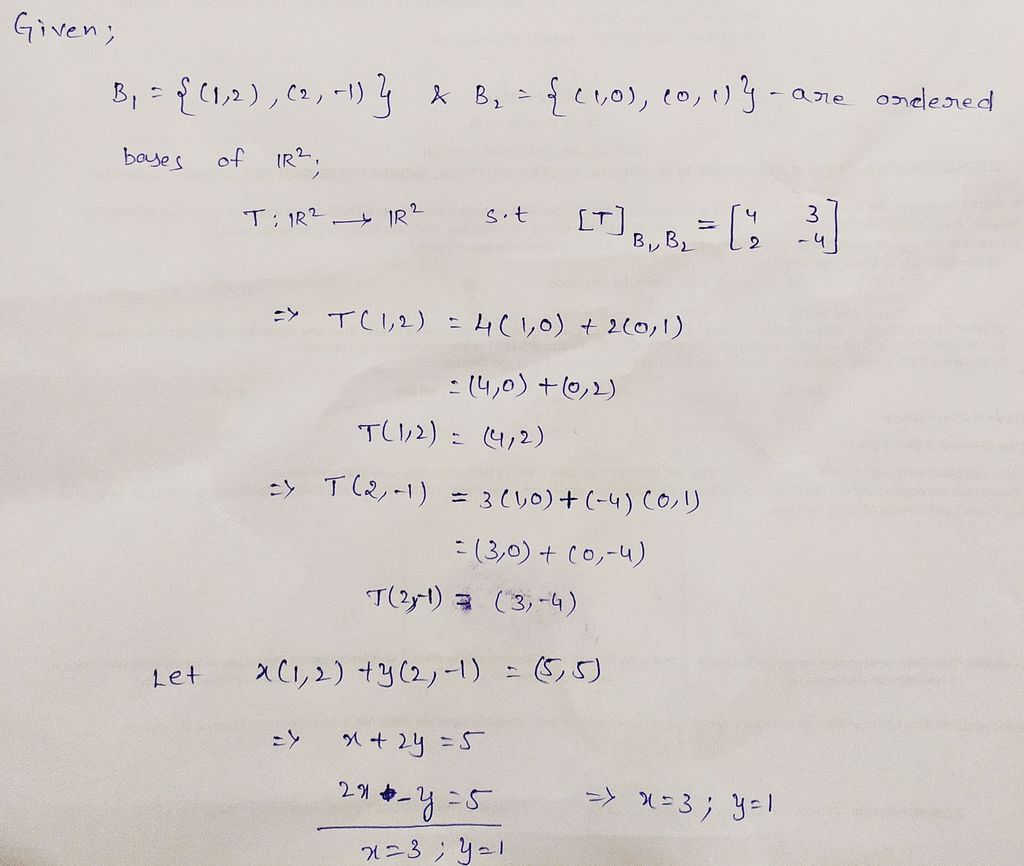 Given;
B₁ = {(1,2), (2,-1)} & B₂ = {(1,0), (0,1)} - are ordered
bases of ℝ²;
T: ℝ² → ℝ² s.t [T]B₁,B₂ = [4 3; 2 -4]
=> T(1,2) = 4(1,0) + 2(0,1)
= (4,0) + (0,2)
T(1,2) = (4,2)
=> T(2,-1) = 3(1,0) + (-4)(0,1)
= (3,0) + (0,-4)
T(2,-1) = (3,-4)
Let x(1,2) + y(2,-1) = (5,5)
=> x + 2y = 5
2x - y = 5 => x=3; y=1
x=3; y=1